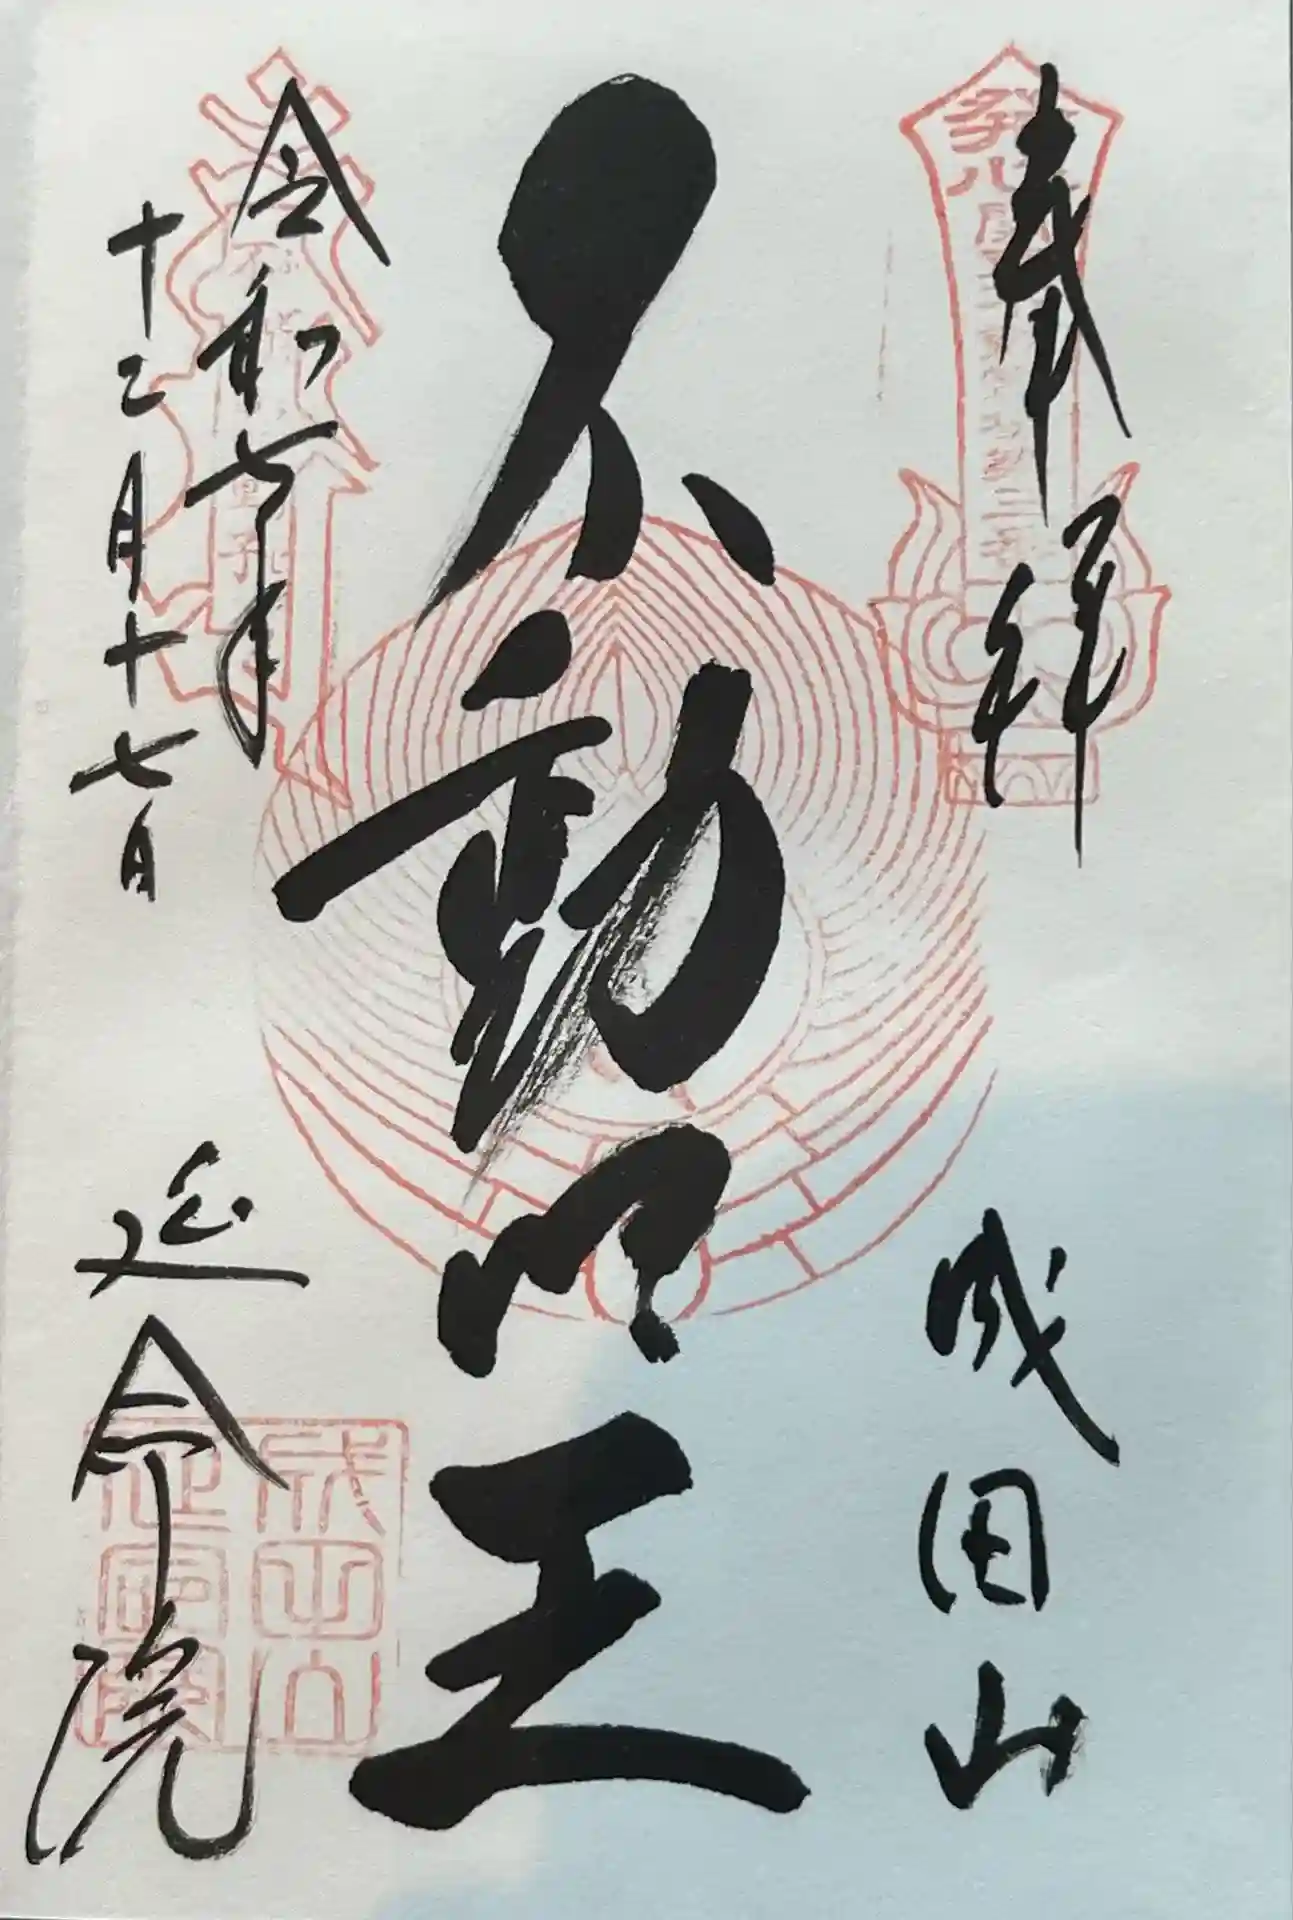 奉拝
成田山
不動明王
令和七年
十二月十七日
延命院
成田山
延命院